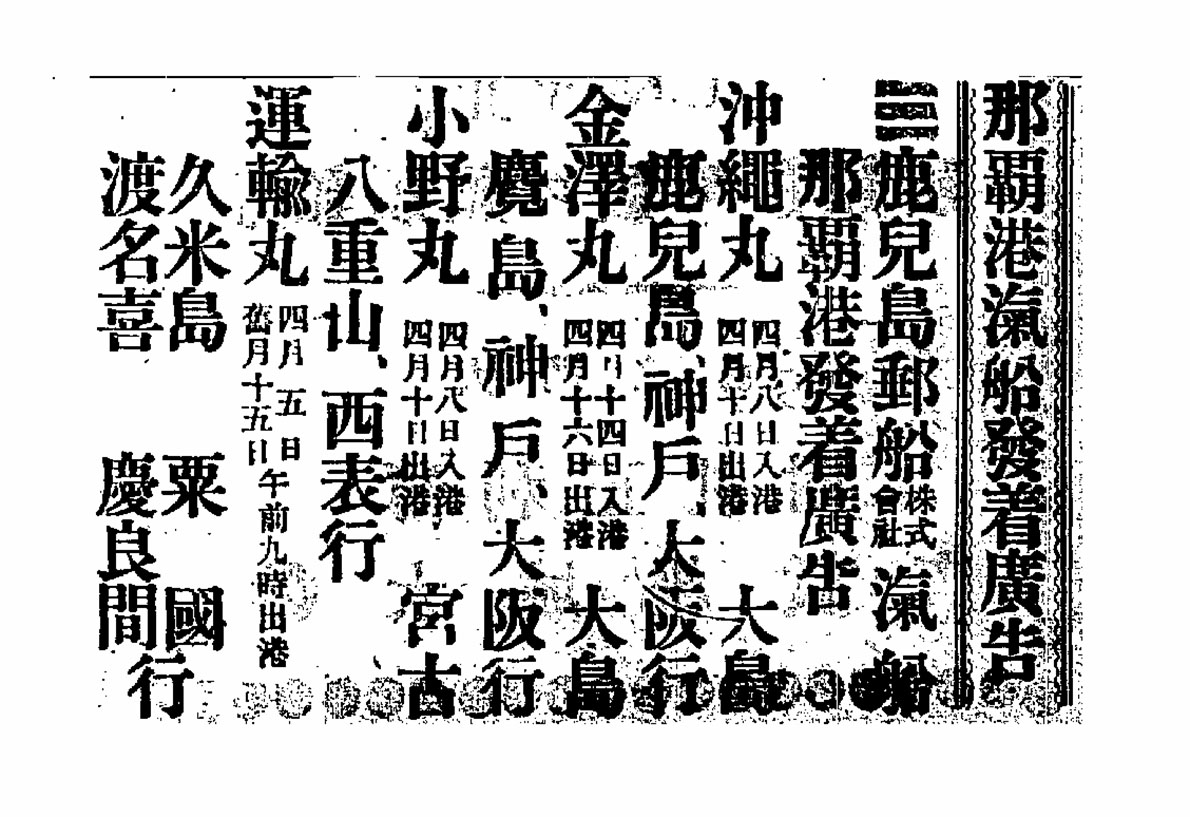 那覇港滊船發着廣告
三鹿兒島郵船株式會社滊船
那覇港發着廣告
沖繩丸 四月八日入港 四月十日出港 大島
鹿兒島、神戶、大阪行
金澤丸 四月十四日入港 四月十六日出港 大島
麑島、神戶、大阪行
小野丸 四月八日入港 四月十日出港 宮古
八重山、西表行
運輸丸 四月五日 舊月十五日 午前九時出港
久米島 粟國
渡名喜 慶良間
行